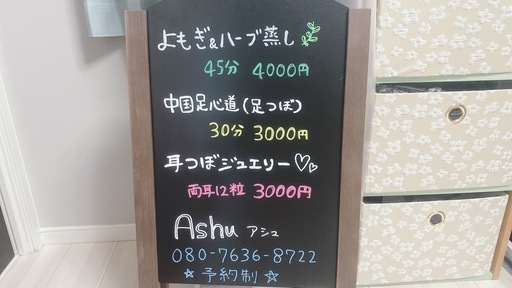 よもぎ&ハーブ蒸し
45分 4000円
中国足心道(足つぼ)
30分 3000円
耳つぼジュエリー♡♡
両耳12粒 3000円
Ashu アシュ
080-7636-8722
☆予約制☆